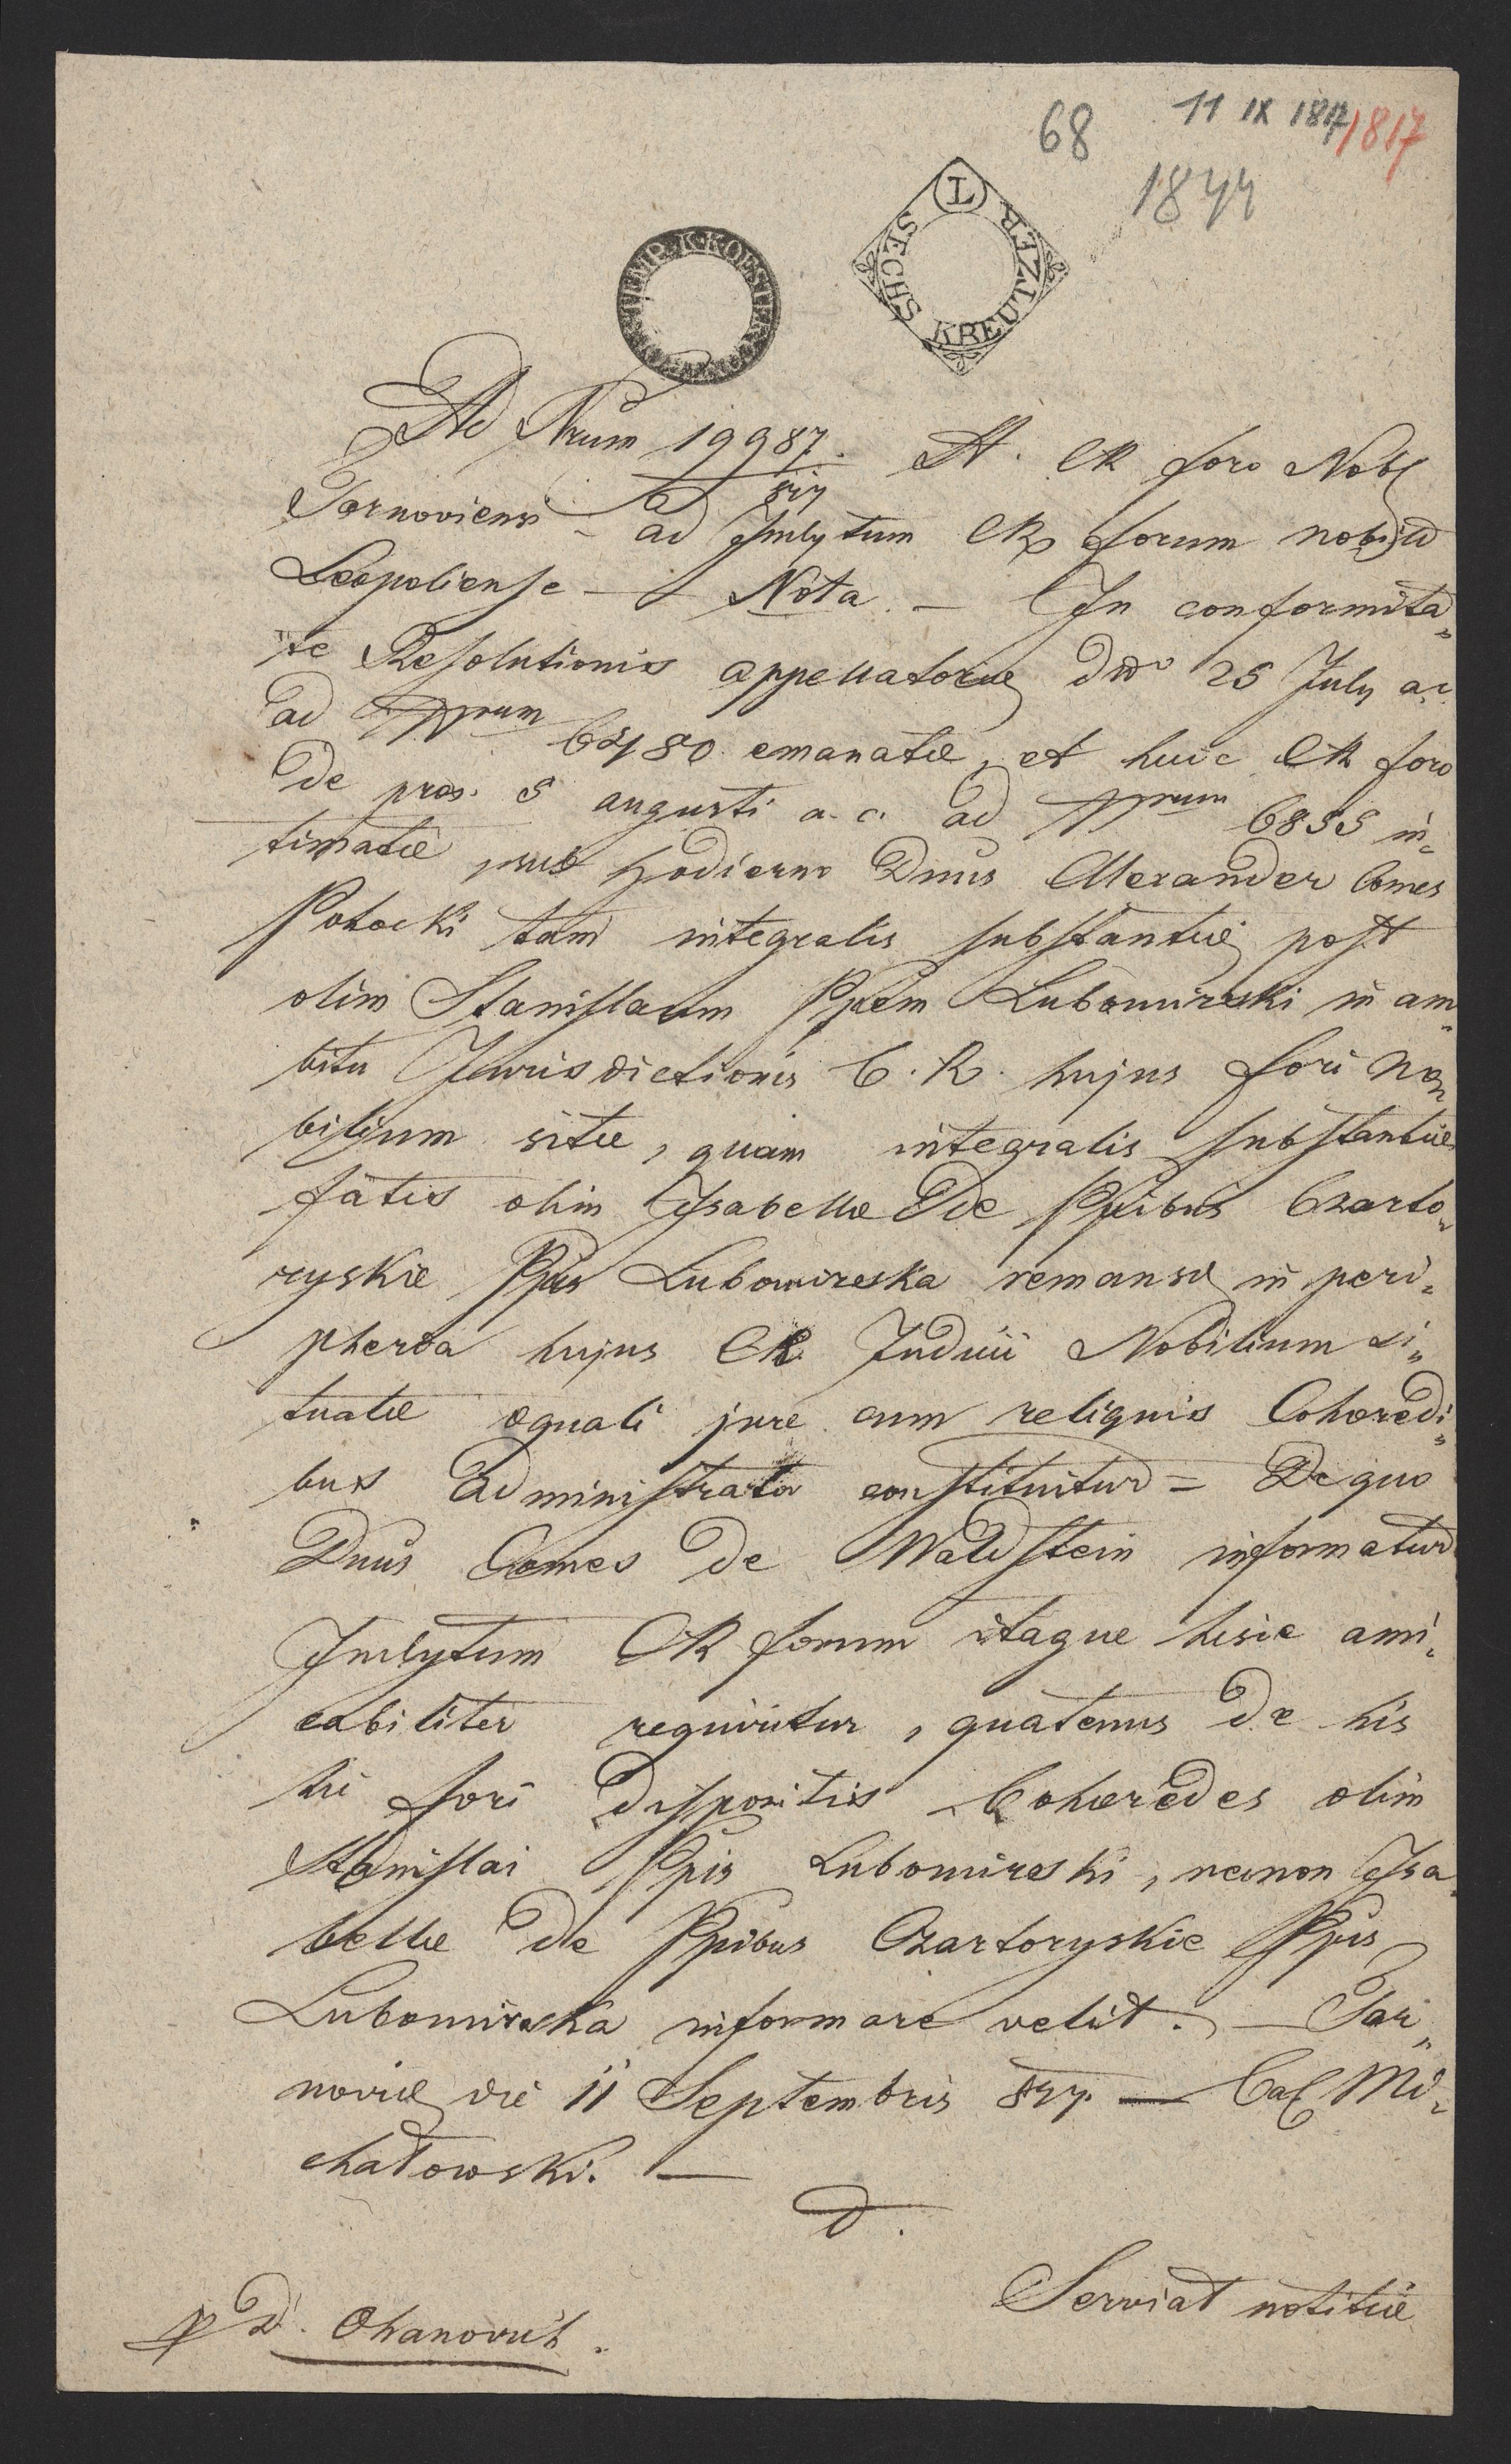 68 11 IX 1817 1817
1844
STEMP. K. KOESTER
T SECHS KREUTZER
Ad Nrum 19987. A. CR foro Nobl
817
Tarnoviensi - ad Inclytum CR forum nobiliū
Leopoliense — Nota. — In conformita„
te Resolutionis appellatoriæ ddto 25 July a.c.
ad Nrum 6480 emanatæ, et huic CR foro
de præs. 5 augusti a. c. ad Nrum 6855 in„
timatæ, sub hodierno Dnus Alexander Comes
Potocki tam integralis substantiæ post
olim Stanislaum Ppem Lubomirski in am„
bitu Jurisdictionis C. R. hujus fori No„
bilium sitæ, quam integralis substantiæ
fatis olim Isabellæ De Ppibus Czarto„
ryskie Ppis Lubomirska remansæ in peri„
pheria hujus CR Judicii Nobilium si„
tuatæ æquali jure cum reliquis Cohæredi„
bus administrator constituitur = De quo
Dnus Comes de Waldstein informatur
Inclytum CR forum itaque hisce ami„
cabiliter requiritur, quatenus de his
hi fori dispositis Cohæredes olim
Stanislai Ppis Lubomirski, necnon Isa„
bellæ de Ppibus Czartoryskie Ppis
Lubomirska informare velit. — Tar„
noviæ die 11 Septembris 817. — Caj Mi„
chałowski. —
D.
Serviat notitiæ
p D. Ohanovich.